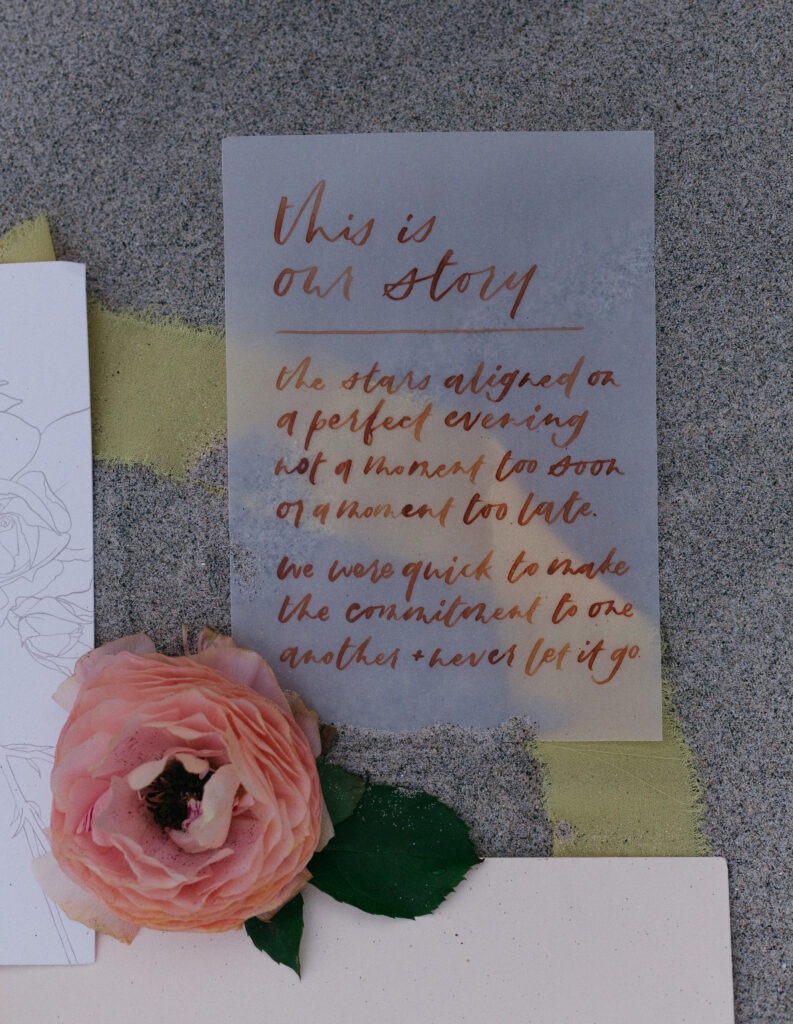 this is
our story
the stars aligned on
a perfect evening
not a moment too soon
or a moment too late.
we were quick to make
the commitment to one
another + never let it go.